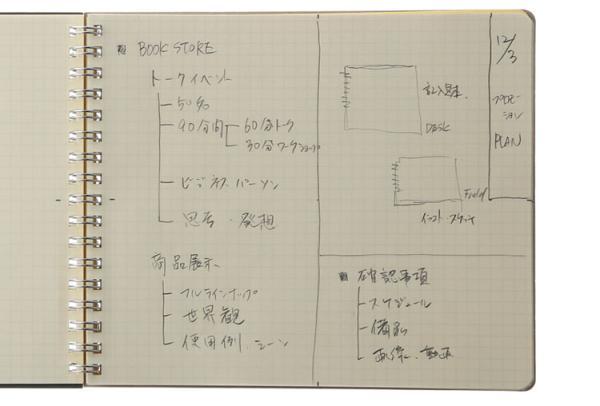 BOOK STORE
トークイベント
50名
90分間
60分トーク
30分ワークショップ
ビジネスパーソン
思考・発想
商品展示
フルラインナップ
世界観
使用例、シーン
記入見本
DESK
Field
12/3
プロモーション
PLAN
確認事項
スケジュール
備品
画像、動画